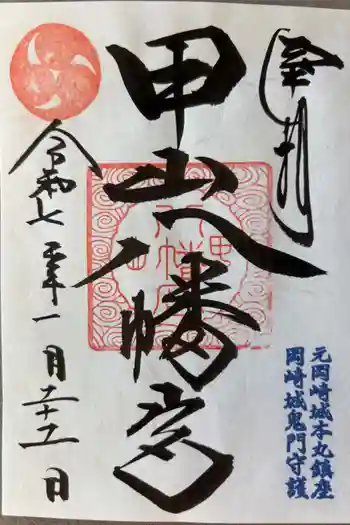 奉拝
元岡崎城本丸鎮座
岡崎城鬼門守護
甲山八幡宮
令和七年一月二十二日